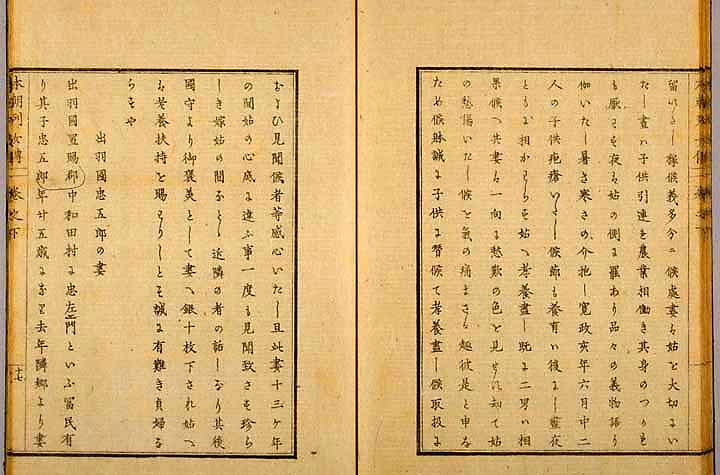 留いさし稼候義多分ニ候處妻も姑を大切よい
たし畫ハ子供引連を農業相働き其身のつかも
も厭を夜も姑の側よ罷あり品々の義物語り
伽いたし暑さ寒さの介抱し寛政亥年六月中二
人の子供疱瘡いし候節も養育い後まし晝夜
ともよ相かを姑へ孝養盡し既よ二男ハ相
果候へ共妻も一向よ愁歎の色を見せ知て姑
の愁傷いたし候を氣の痛まさる趣彼是と申な
ため候躰誠よ子供よ替候て孝養盡し候取扱よ
および見聞候者等感心いたし且此妻十三ヶ年
の間姑の心底よ違ふ事一度も見聞致さを珍ら
しき嫁姑の間なと近隣の者の話しなり其後
國守より御褒美として妻へ銀十枚下され姑へ
も老養扶持を賜りしとそ誠よ有難き貞婦な
らをや
出羽國忠五郎の妻
出羽國置賜郡中和田村よ忠左エ門といふ冨民有
り其子忠五郎年廿五歳よなり去年隣郷より妻
本朝列女傳 卷之下
十七